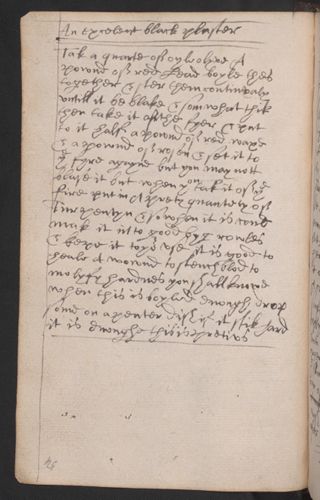 An excelent black plaster
Tak a quarte of oyle olive A
pownd of red lead boyle thes
together & ster them continualy
untill it be blake & somwhat thik
then take it of the fyer & put
to it half a pownd of red waxe
& a pownd of rosen & set it to
ye fyre agayne but you may not
boyle it but when you take it of ye
fire put in A prety quantety of
turpentyn & so when it is could
mak it into good byg rowles
& kepe it to yor use it is good to
heale A wound to stench blod to
molyfy hardnes you shall knowe
when this is boyled enough drop
som on a peuter dish if it stik hard
it is enoughe this is pretius